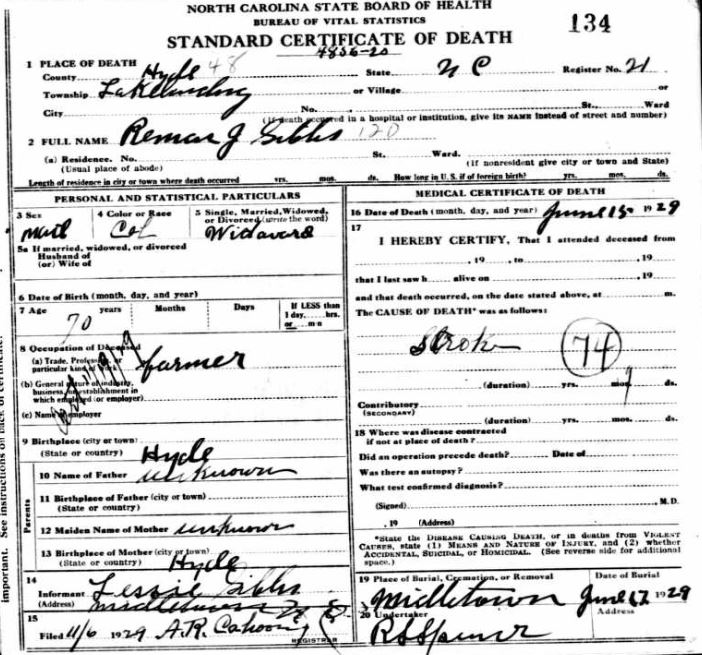 NORTH CAROLINA STATE BOARD OF HEALTH
BUREAU OF VITAL STATISTICS
STANDARD CERTIFICATE OF DEATH
134
4856-20
1 PLACE OF DEATH
County Hyde 48 State N C Register No. 21
Township Lakelanding or Village or
City No. St., Ward
(If death occurred in a hospital or institution, give its NAME instead of street and number)
2 FULL NAME Remar J Gibbs 120
(a) Residence. No. St. Ward.
(Usual place of abode) (If nonresident give city or town and State)
Length of residence in city or town where death occurred yrs. mos. ds. How long in U. S. if of foreign birth? yrs. mos. ds.
PERSONAL AND STATISTICAL PARTICULARS
3 Sex 4 Color or Race 5 Single, Married, Widowed,
or Divorced (write the word)
Male Col
5a If married, widowed, or divorced
Husband of
(or) Wife of
6 Date of Birth (month, day, and year)
7 Age years Months Days If LESS than
1 day, hrs.
or m-n
70
8 Occupation of Deceased
(a) Trade, Profession, or
particular kind of work farmer
(b) General nature of industry,
business, or establishment in
which employed (or employer)
(c) Name of employer
9 Birthplace (city or town)
(State or country) Hyde
Parents
10 Name of Father unknown
11 Birthplace of Father (city or town)
(State or country)
12 Maiden Name of Mother unknown
13 Birthplace of Mother (city or town)
(State or country) Hyde
14
Informant Lessie Gibbs
(Address) Middletown
15
Filed 11/6 1929 A.R. Cahoon
REGISTRAR
MEDICAL CERTIFICATE OF DEATH
16 Date of Death (month, day, and year) June 15 1929
17
I HEREBY CERTIFY, That I attended deceased from
, 19 , to , 19
that I last saw h alive on , 19
and that death occurred, on the date stated above, at m.
The CAUSE OF DEATH* was as follows:
Stroke 74
(duration) yrs. mos. ds.
Contributory
(SECONDARY)
(duration) yrs. mos. ds.
18 Where was disease contracted
if not at place of death?
Did an operation precede death? Date of
Was there an autopsy?
What test confirmed diagnosis?
(Signed) , M. D.
, 19 (Address)
*State the DISEASE CAUSING DEATH, or in deaths from VIOLENT
CAUSES, state (1) MEANS AND NATURE OF INJURY, and (2) whether
ACCIDENTAL, SUICIDAL, or HOMICIDAL. (See reverse side for additional
space.)
19 Place of Burial, Cremation, or Removal Date of Burial
Middletown June 17 1929
20 Undertaker Address
R S Spencer
important. See instructions on back of certificate.